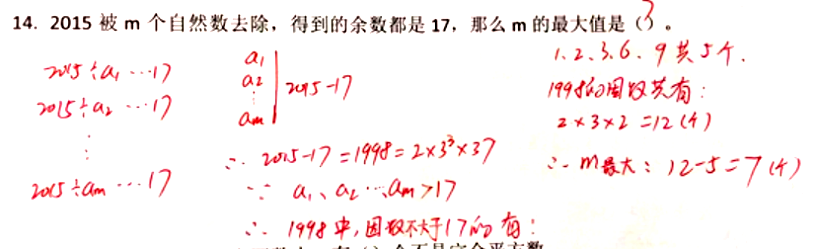 14. 2015 被 m 个自然数去除，得到的余数都是 17，那么 m 的最大值是（）。
2015÷a₁ …17
2015÷a₂ …17
⋮
2015÷aₘ …17
a₁
a₂
⋮
aₘ
2015-17
∴ 2015-17=1998=2×3³×37
∵ a₁、a₂ …aₘ>17
∴ 1998中,因数不大于17的有:
1、2、3、6、9 共5个.
1998的因数共有:
2×3×2=12(个)
∴ m最大: 12-5=7(个)